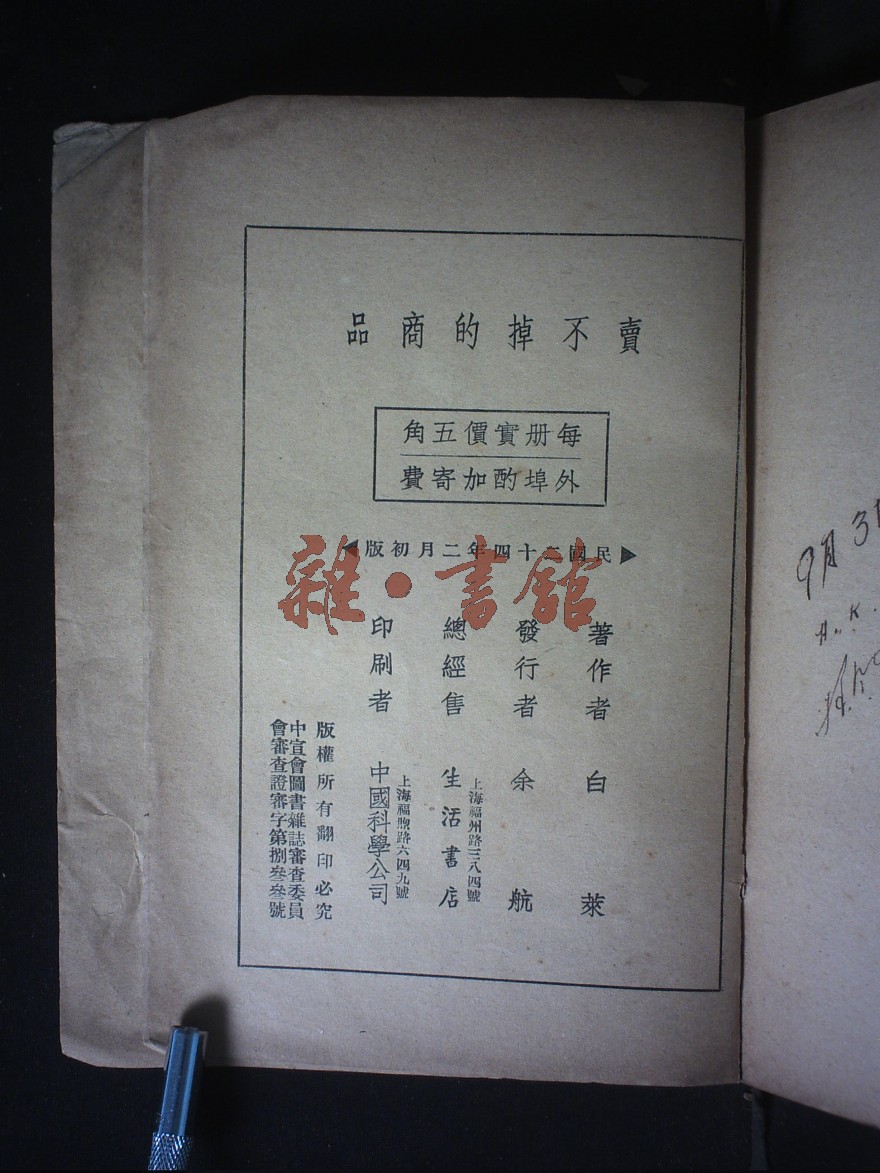 賣不掉的商品
每册實價五角
外埠酌加寄費
民國二十四年二月初版
著作者 白萊
發行者 余航
上海福州路三八四號
總經售 生活書店
上海福煦路六四九號
印刷者 中國科學公司
版權所有翻印必究
中宣會圖書雜誌審查委員
會審查證審字第捌叁叁號
雜·書館
9月3